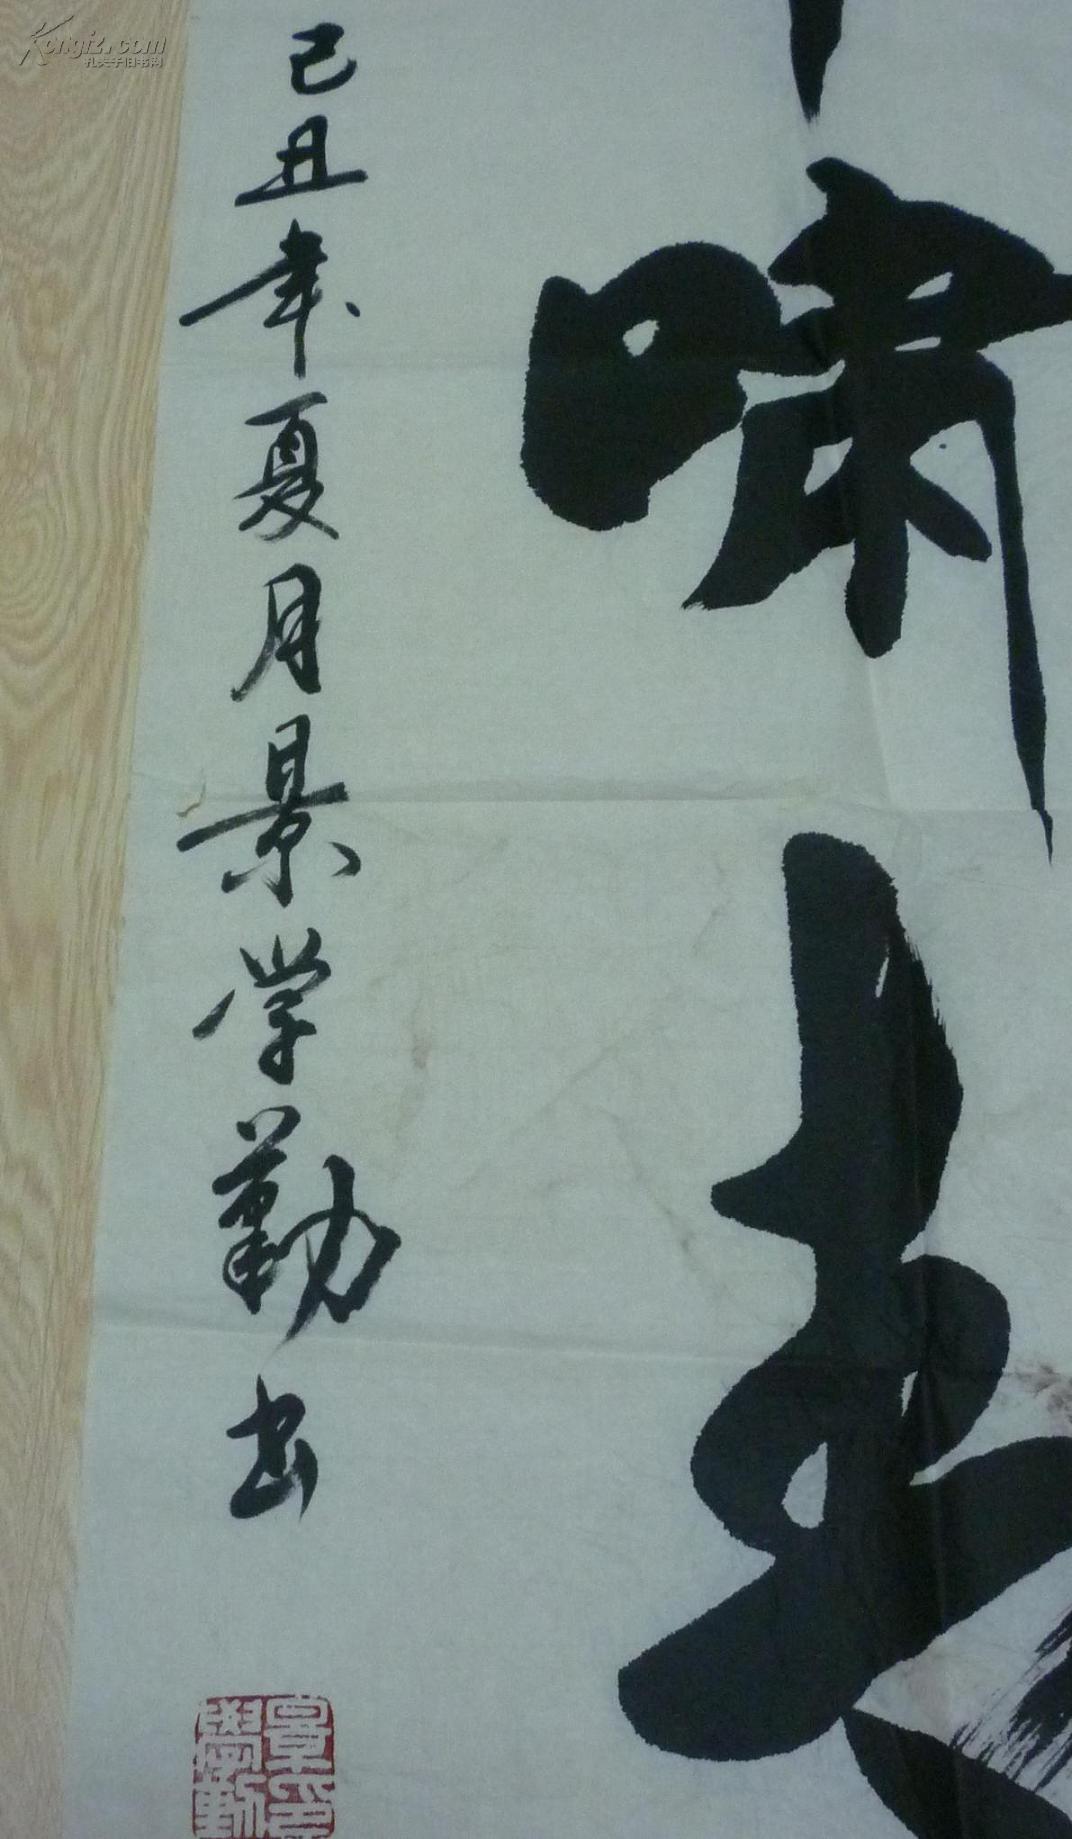 Kongfz.com
孔夫子旧书网
啸
己丑年夏月景学勤书
景印學勤